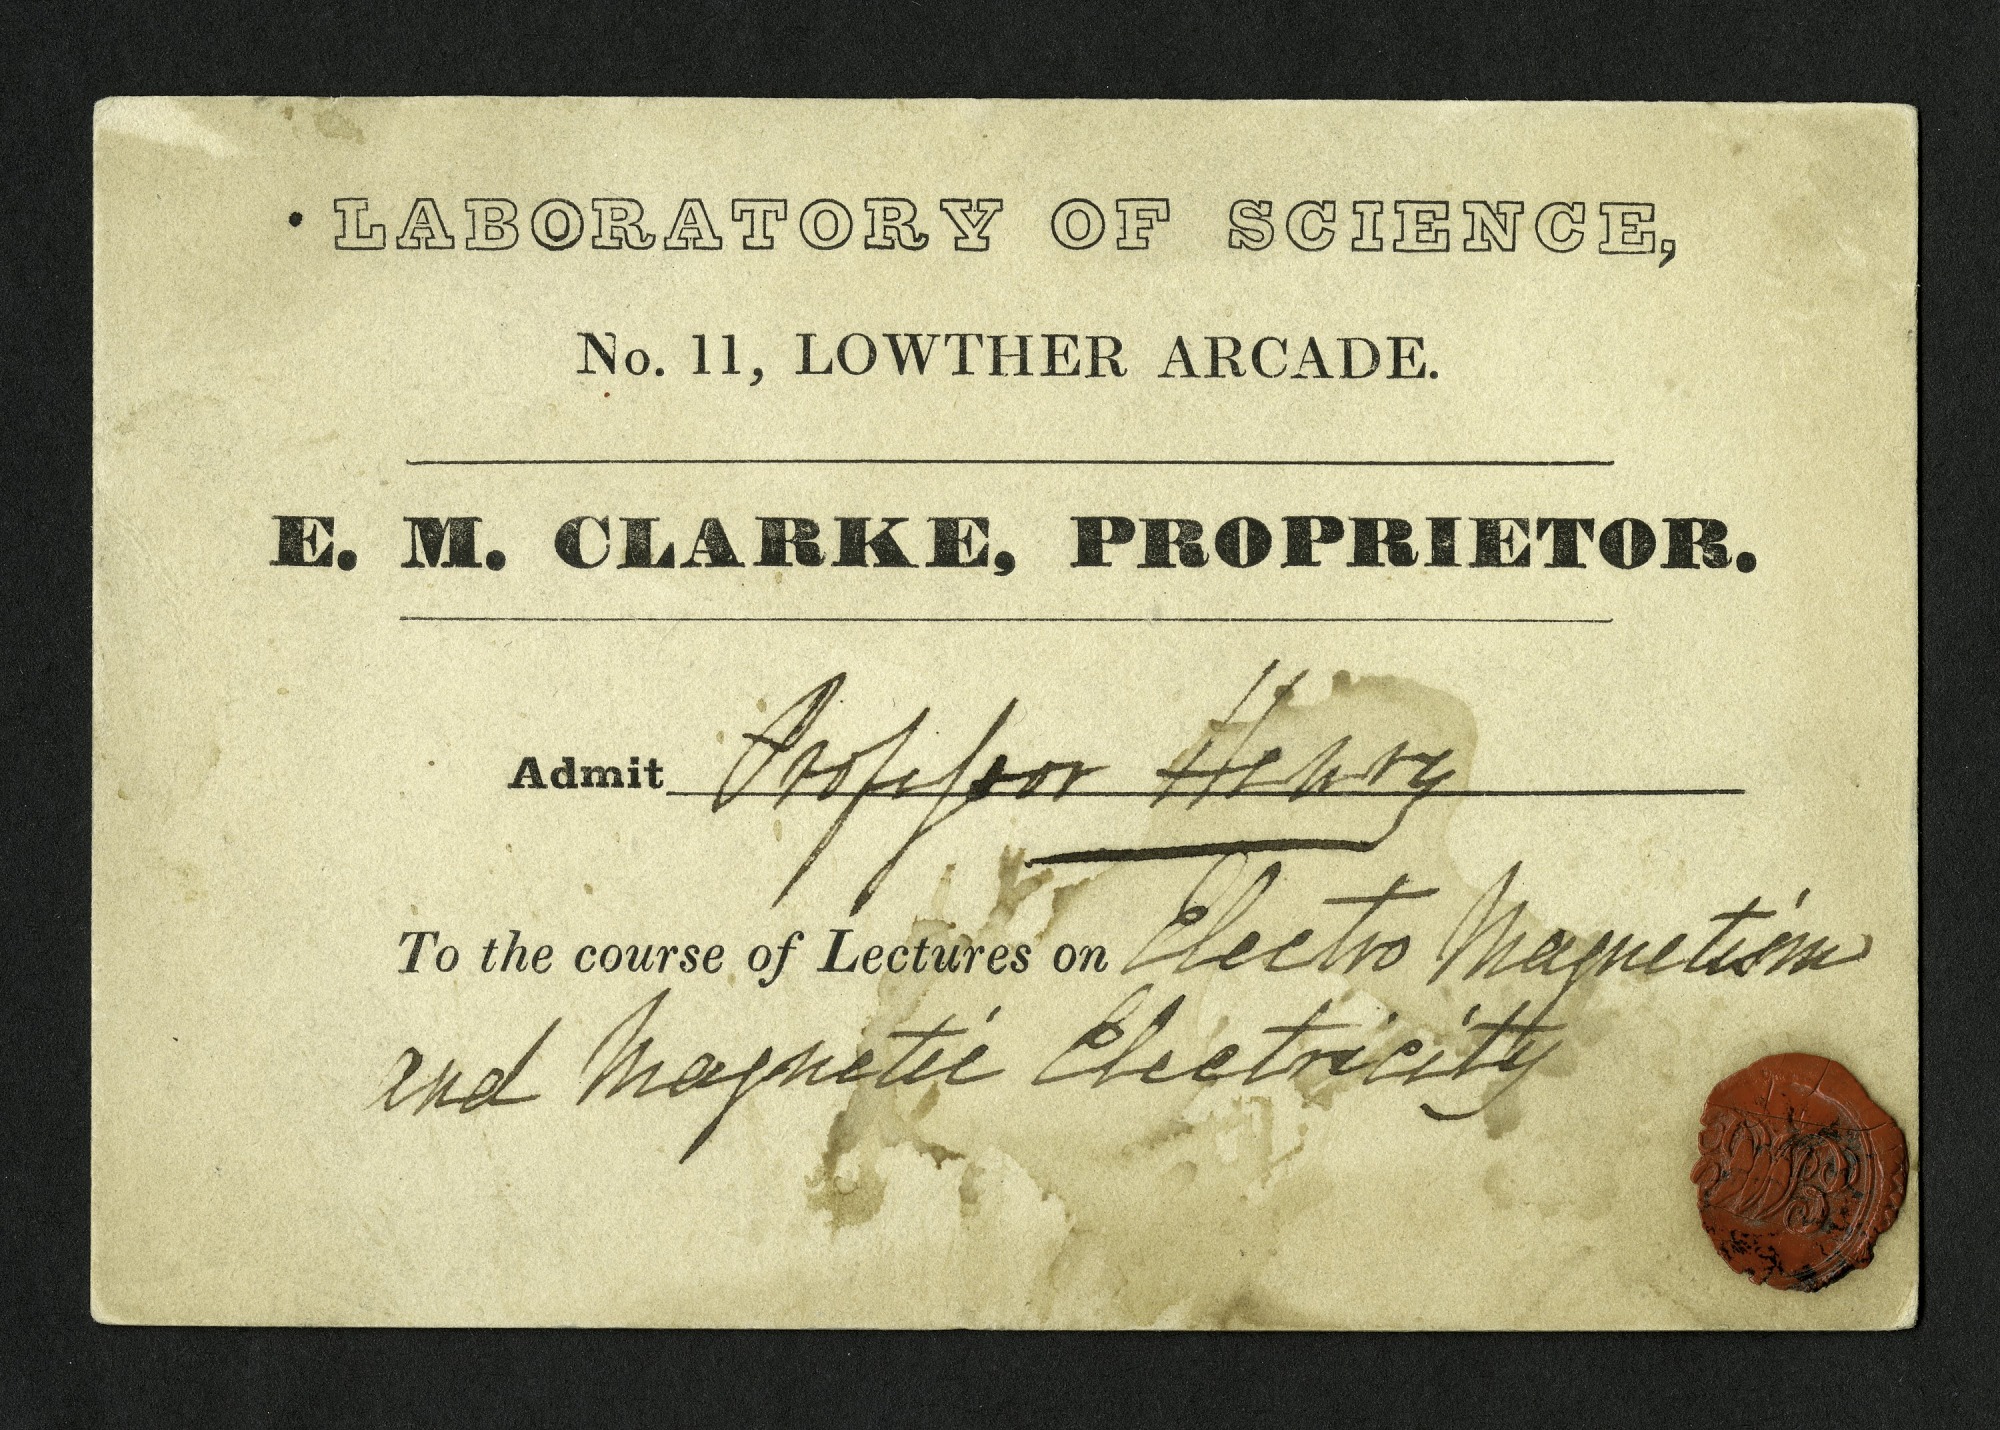 LABORATORY OF SCIENCE,
No. 11, LOWTHER ARCADE.
E. M. CLARKE, PROPRIETOR.
Admit Professor Henry
To the course of Lectures on Electro Magnetism
and Magnetic Electricity